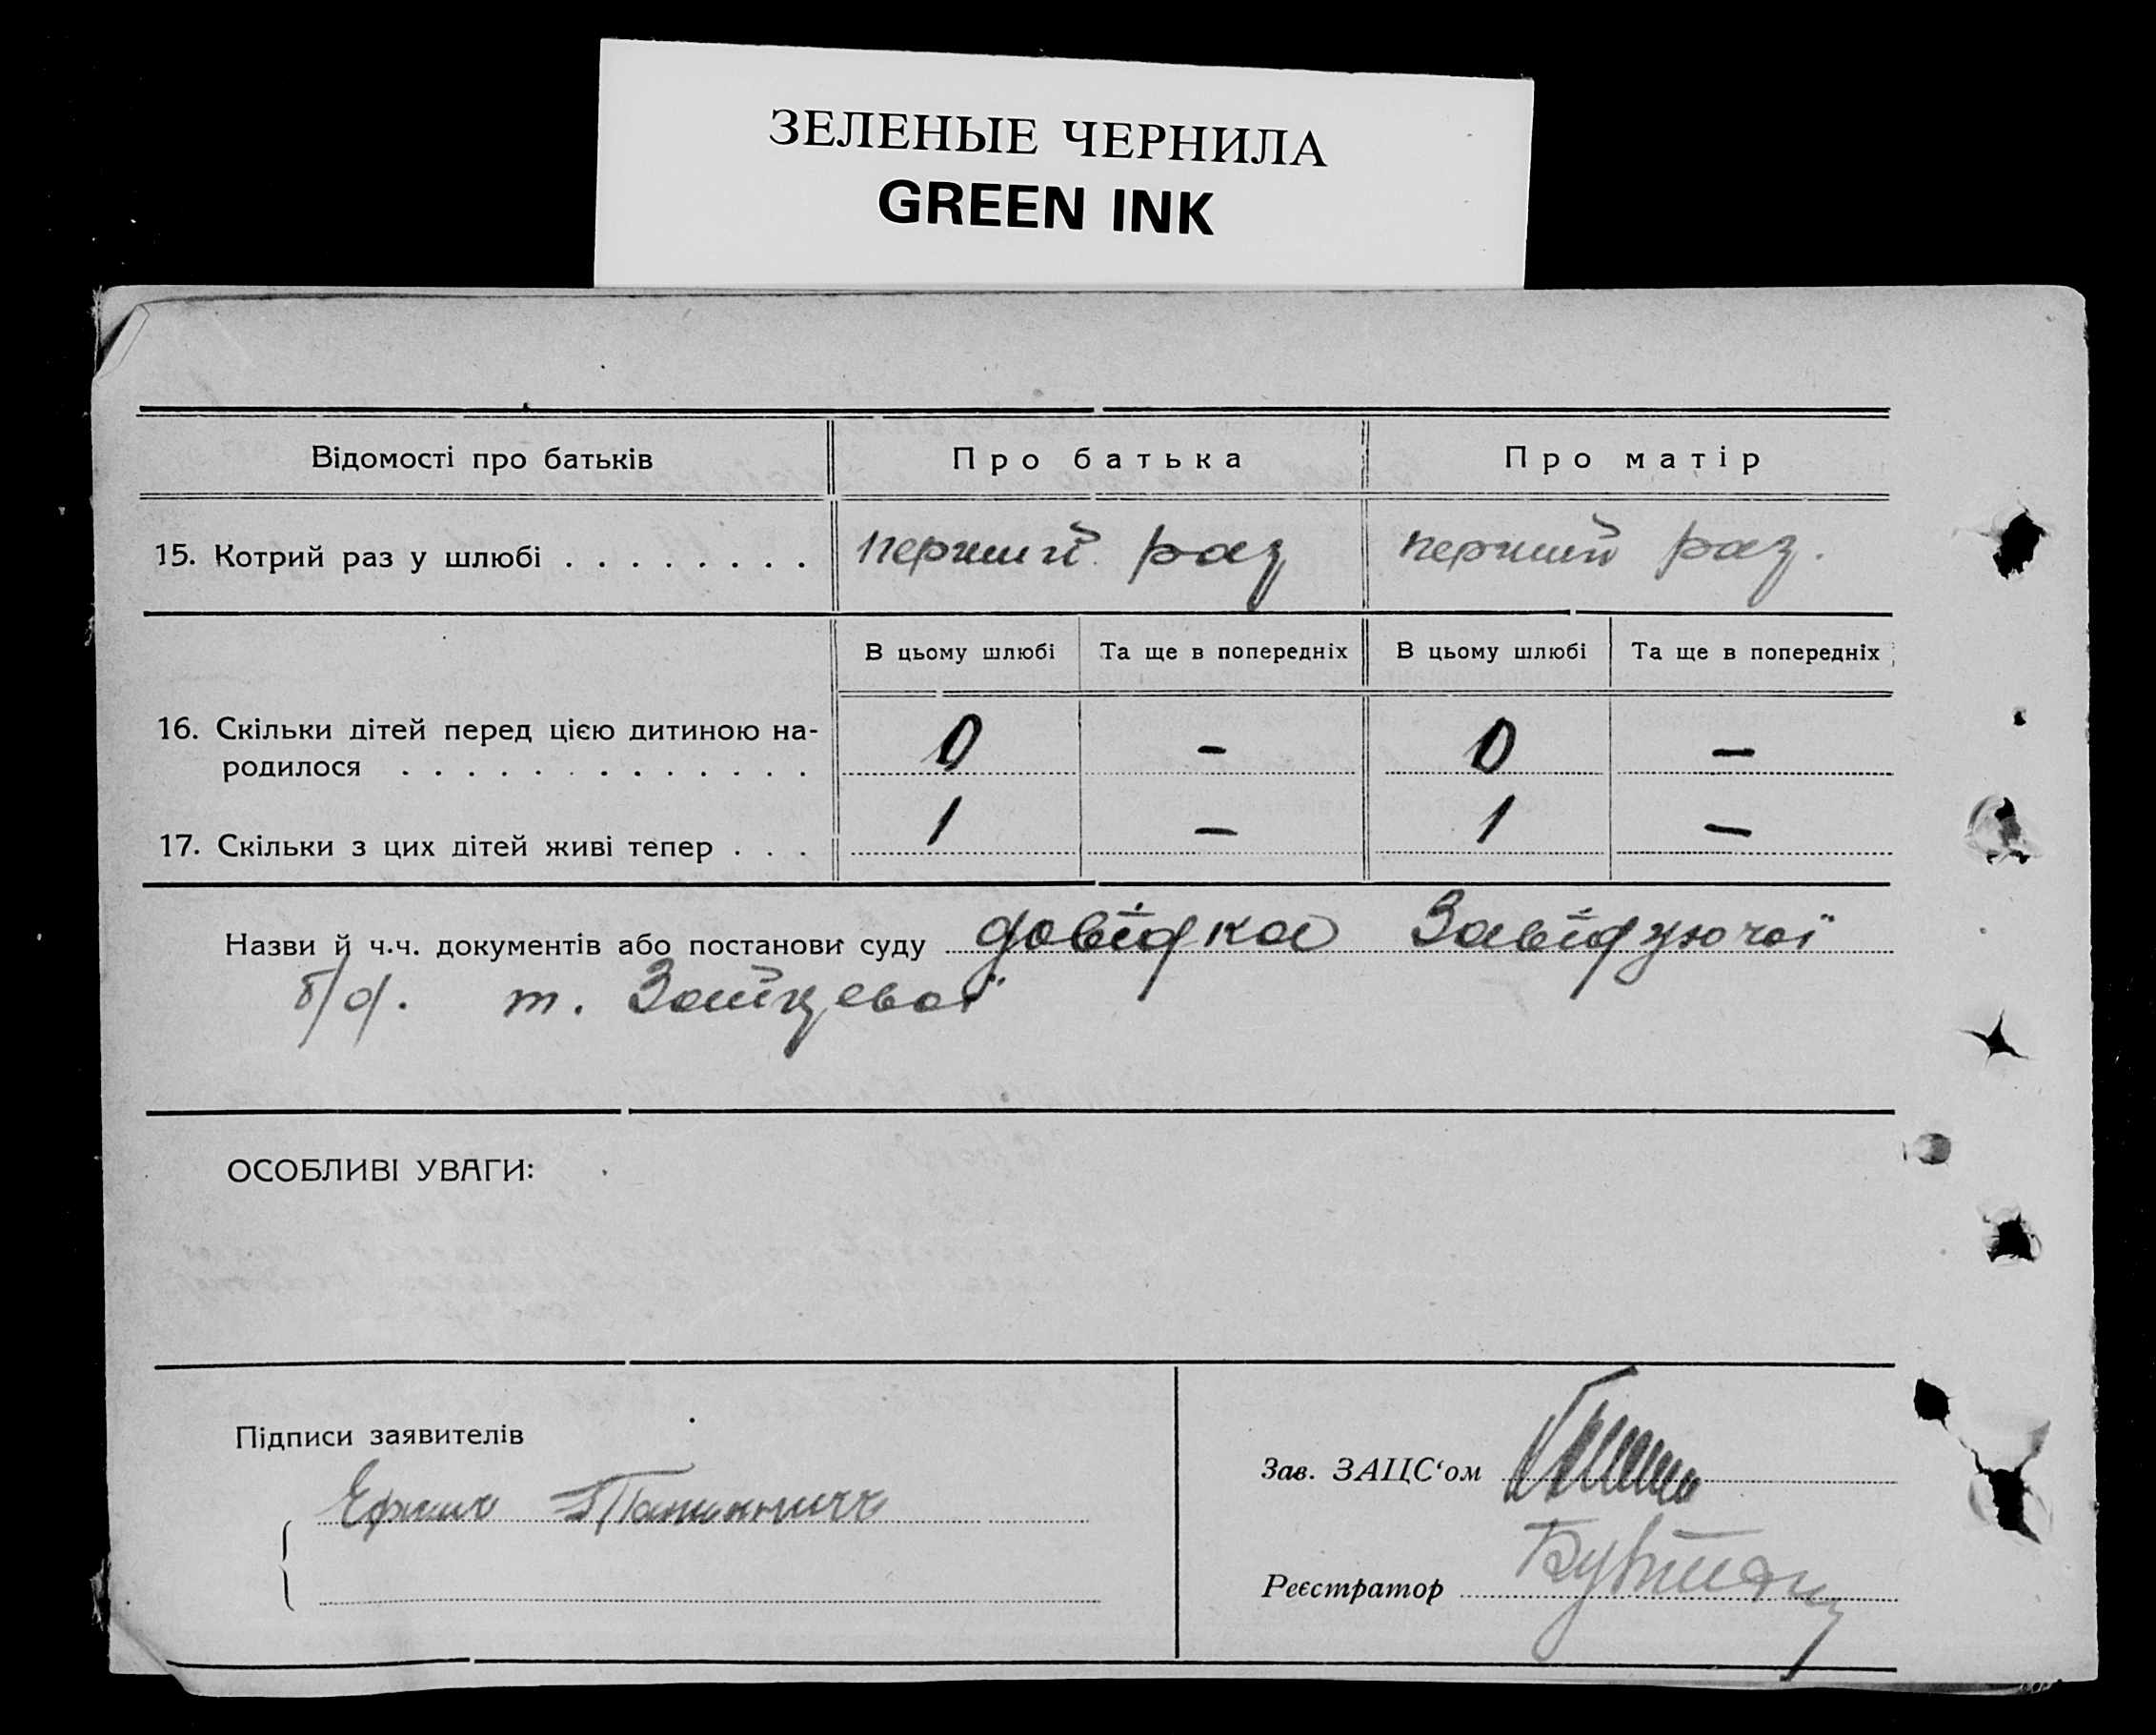 ЗЕЛЕНЫЕ ЧЕРНИЛА
GREEN INK
Відомості про батьків Про батька Про матір
15. Котрий раз у шлюбі . . . . . . . . перший раз перший раз.
В цьому шлюбі Та ще в попередніх В цьому шлюбі Та ще в попередніх
16. Скільки дітей перед цією дитиною на-
родилося . . . . . . . . . . . . . 0 - 0 -
17. Скільки з цих дітей живі тепер . . . 1 - 1 -
Назви й ч.ч. документів або постанови суду довідка Завідуючої
б/д. т. Зайцевої
ОСОБЛИВІ УВАГИ:
Підписи заявителів
Зав. ЗАЦС‘ом
Реєстратор